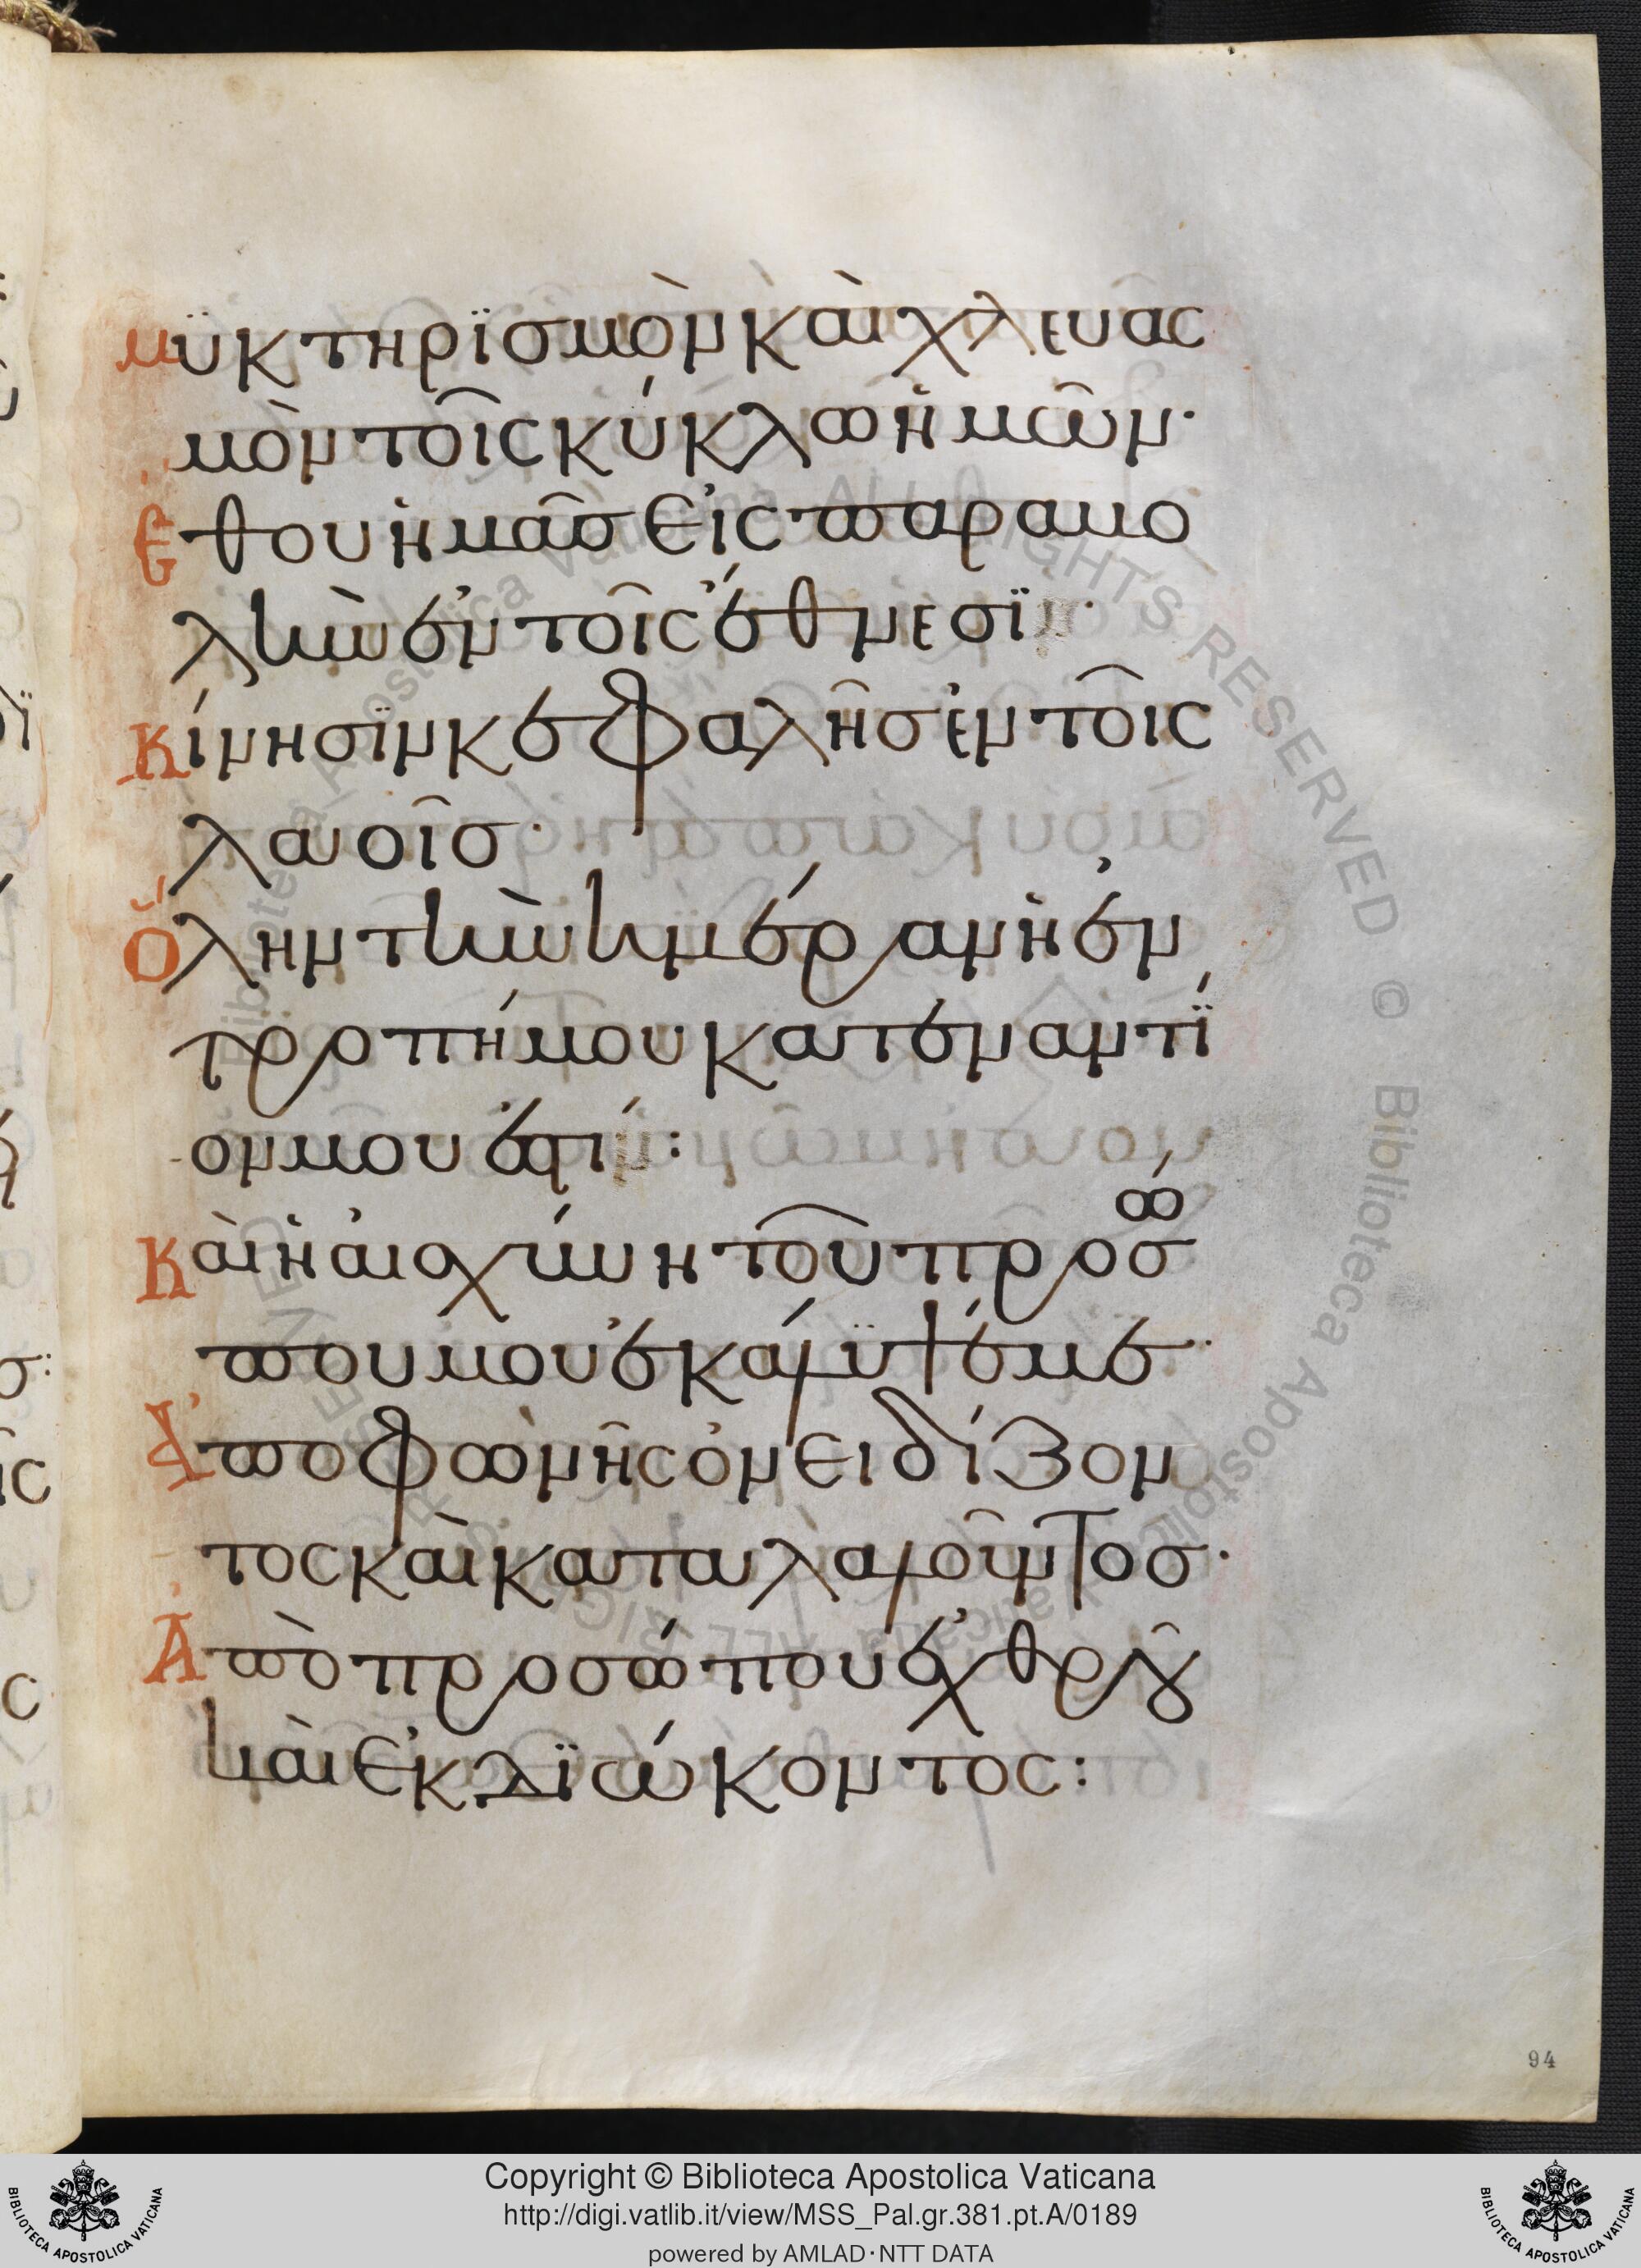 μϋκτηρϊσμὸν καὶ χλευας
μὸν τοῖς κύκλω ἡμῶν·
Εθου ἡμᾶσ εἰς παραβο
λὴν ἐν τοῖς ἔθνεσϊν·
Κίνησϊν κεφαλῆσ ἐν τοῖς
λαοῖσ·
Ὅλην τὴν ἡμέραν ἡ ἐν
τροπή μου κατεναντί
ον μου ἐστίν:
Καὶ ἡ αἰσχύνη τοῦ προσώ
που μου ἐκάλυψέ με·
Ἀπο φωνῆς ὀνειδίζον
τος καὶ καταλαλοῦντοσ·
Ἀπὸ προσώπου ἐχθροῦ
καὶ ἐκδϊώκοντος:
94
Biblioteca Apostolica Vaticana ALL RIGHTS RESERVED © Biblioteca Apostolica Vaticana ALL RIGHTS RESERVED
Copyright © Biblioteca Apostolica Vaticana
http://digi.vatlib.it/view/MSS_Pal.gr.381.pt.A/0189
powered by AMLAD·NTT DATA
BIBLIOTECA APOSTOLICA VATICANA
BIBLIOTECA APOSTOLICA VATICANA